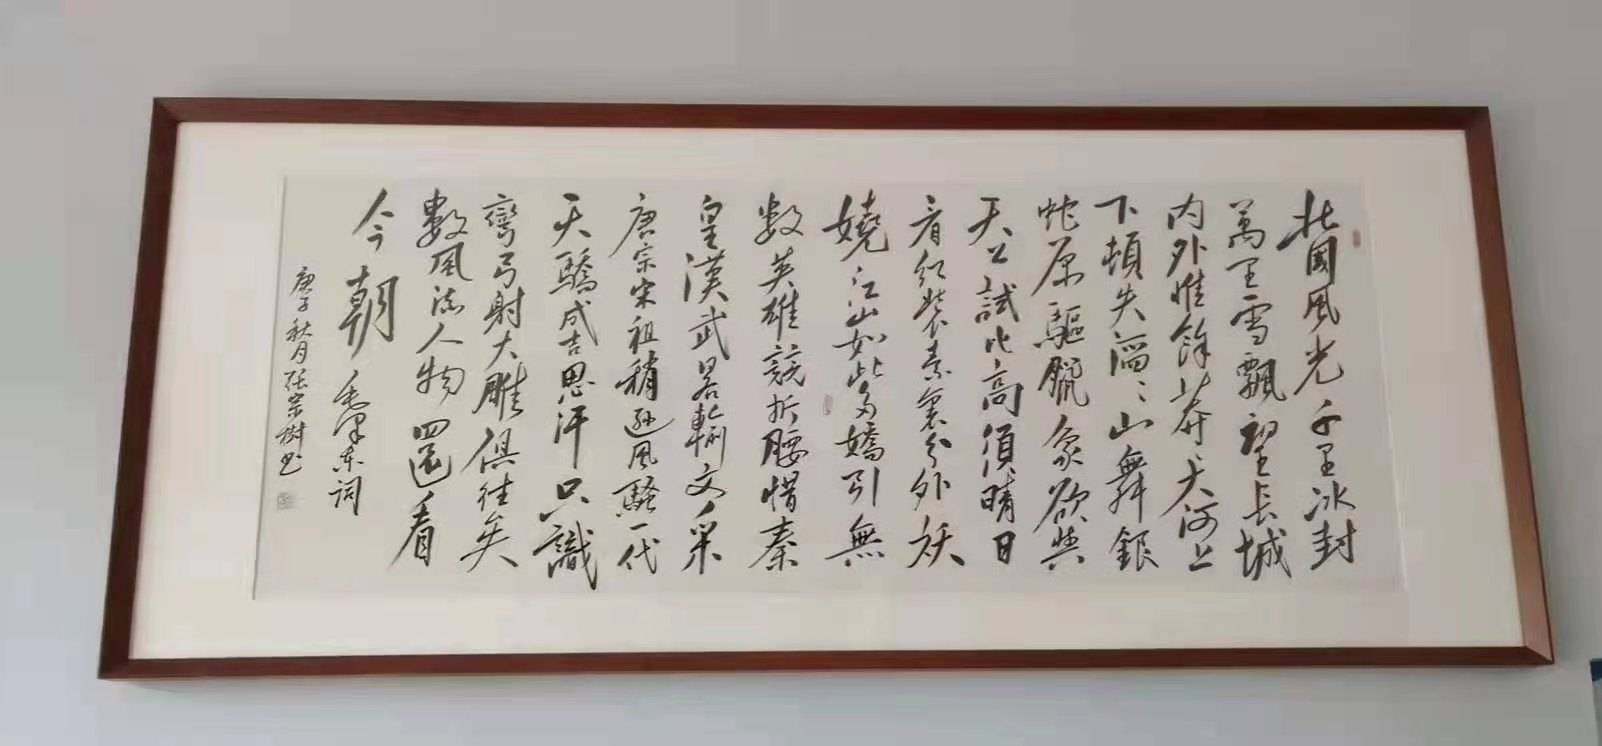 北國風光千里冰封
萬里雪飄望長城
内外惟餘莽〻大河上
下頓失滔〻山舞銀
蛇原驅臘象欲與
天公試比高須晴日
看紅裝素裹分外妖
嬈江山如此多嬌引無
数英雄競折腰惜秦
皇漢武畧輸文采
唐宗宋祖稍遜風騷一代
天驕成吉思汗只識
彎弓射大雕俱往矣
數風流人物還看
今朝 毛澤東詞
庚子秋月張宗樹书